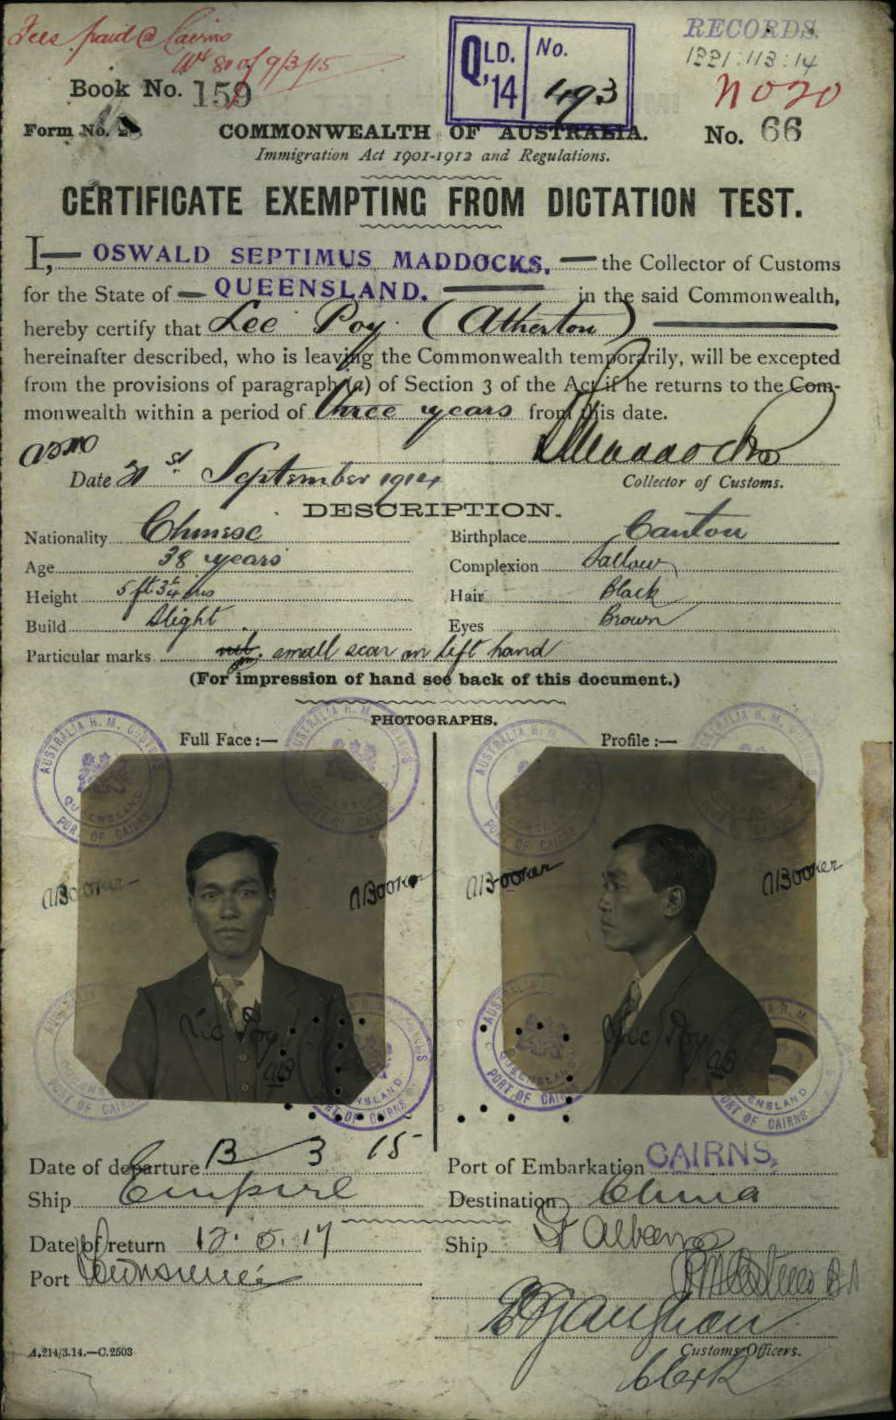 Fees paid @ Cairns
9/3/15
RECORDS.
QLD. No.
'14 493
Book No. 159
No 20
Form No.
COMMONWEALTH OF AUSTRALIA.
No. 66
Immigration Act 1901-1912 and Regulations.
CERTIFICATE EXEMPTING FROM DICTATION TEST.
I, OSWALD SEPTIMUS MADDOCKS, the Collector of Customs
for the State of QUEENSLAND. in the said Commonwealth,
hereby certify that Lee Poy (Atherton)
hereinafter described, who is leaving the Commonwealth temporarily, will be excepted
from the provisions of paragraph (a) of Section 3 of the Act if he returns to the Com-
monwealth within a period of three years from this date.
OSMaddocks
Date 21st September 1914
Collector of Customs.
DESCRIPTION.
Nationality Chinese Birthplace Canton
Age 38 years Complexion Sallow
Height 5 ft 3¼ ins Hair Black
Build Slight Eyes Brown
Particular marks small scar on left hand
(For impression of hand see back of this document.)
PHOTOGRAPHS.
Full Face:— Profile:—
AUSTRALIA H. M. CUSTOMS
QUEENSLAND
PORT OF CAIRNS
ABooker ABooker ABooker ABooker
Lee Poy Lee Poy
Date of departure 13 3 15 Port of Embarkation CAIRNS,
Ship Empire Destination China
Date of return 12.5.17 Ship St Albans
Port Townsville
Customs Officers.
Clerk
A.214/3.14.—C.2503